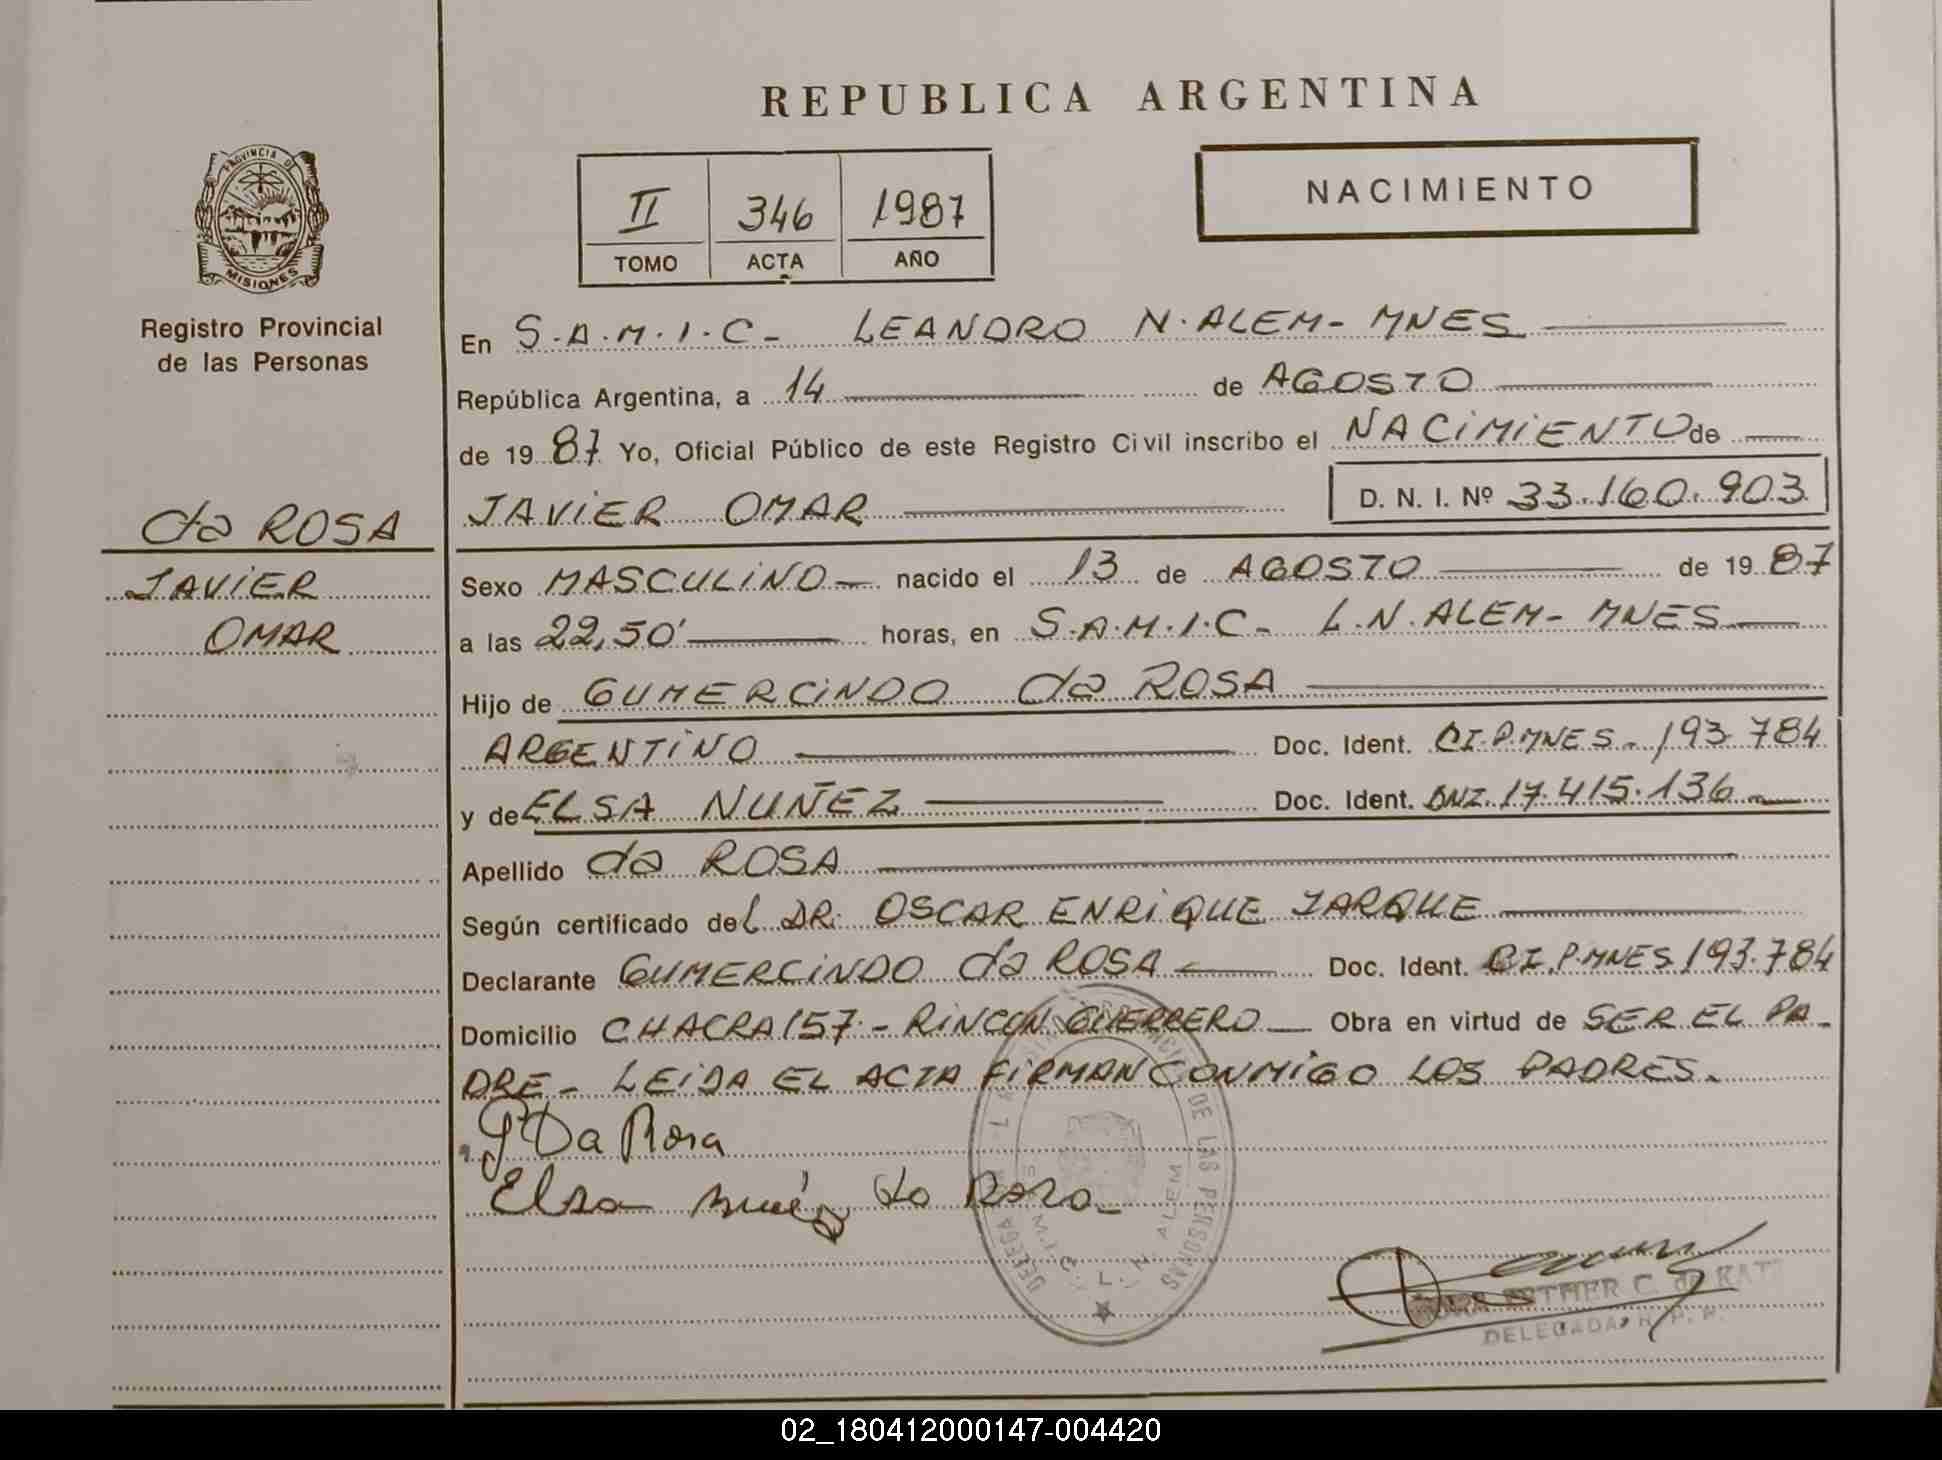 REPUBLICA ARGENTINA
PROVINCIA DE
MISIONES
Registro Provincial
de las Personas
II 346 1987
TOMO ACTA AÑO
NACIMIENTO
En S.A.M.I.C- LEANDRO N.ALEM- MNES
República Argentina, a 14 de AGOSTO
de 1987 Yo, Oficial Público de este Registro Civil inscribo el NACIMIENTO de
JAVIER OMAR D. N. I. Nº 33.160.903
da ROSA
JAVIER
OMAR
Sexo MASCULINO nacido el 13 de AGOSTO de 1987
a las 22,50' horas, en S.A.M.I.C- L.N.ALEM- MNES
Hijo de GUMERCINDO da ROSA
ARGENTINO Doc. Ident. CI.P.MNES. 193.784
y de ELSA NUÑEZ Doc. Ident. DNI. 17.415.136
Apellido da ROSA
Según certificado del DR. OSCAR ENRIQUE JARQUE
Declarante GUMERCINDO da ROSA Doc. Ident. CI.P.MNES 193.784
Domicilio CHACRA 157 - RINCON GUERRERO Obra en virtud de SER EL PA-
DRE - LEIDA EL ACTA FIRMAN CONMIGO LOS PADRES.
G Da Rosa
Elsa Nuñez da Rosa
DE LAS PERSONAS
L. N. ALEM
ESTHER C. de
DELEGADA R. P. P.
02_180412000147-004420